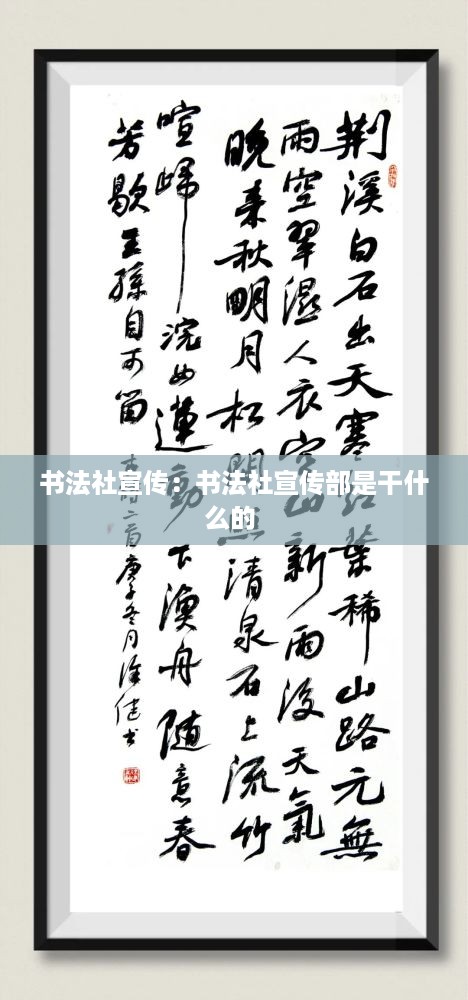 荆溪白石出天寒红葉稀山路元無
雨空翠濕人衣空山新雨後天氣
晚来秋明月松間照清泉石上流竹
喧歸浣女蓮動下漁舟随意春
芳歇王孫自可留
二首庚子冬月徐健书
书法社宣传：书法社宣传部是干什
么的